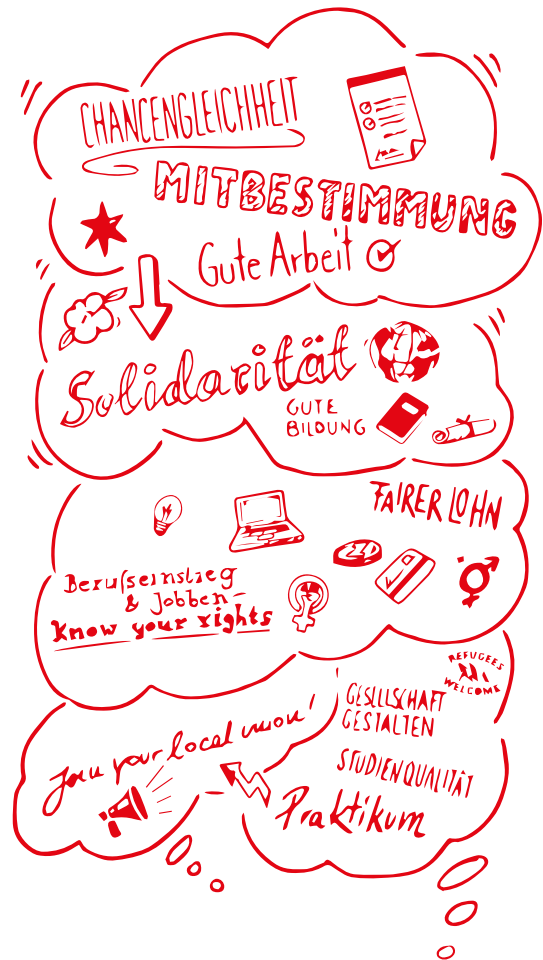 CHANCENGLEICHHEIT
MITBESTIMMUNG
Gute Arbeit
Solidarität
GUTE
BILDUNG
FAIRER LOHN
Berufseinstieg
& Jobben–
know your rights
REFUGEES
WELCOME
GESELLSCHAFT
GESTALTEN
Join your local union!
STUDIENQUALITÄT
Praktikum